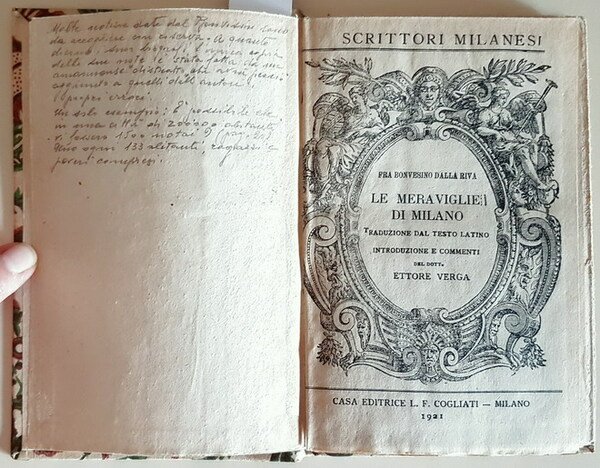 Molte notizie date dal Bonvesin sono
da accogliere con riserva. A quanto
dicono i suoi biografi l'unica copia
delle sue note le è stata fatta da un
amanuense distratto che avrà perciò
aggiunto a quelli dell'autore i
propri errori.
Un solo esempio: È possibile che
in una città di 200000 abitanti
vi fossero 1500 notai? (pag.
Uno ogni 133 abitanti, ragazzi e
poveri compresi.
SCRITTORI MILANESI
FRA BONVESINO DALLA RIVA
LE MERAVIGLIE
DI MILANO
TRADUZIONE DAL TESTO LATINO
INTRODUZIONE E COMMENTI
DEL DOTT.
ETTORE VERGA
CASA EDITRICE L. F. COGLIATI — MILANO
1921